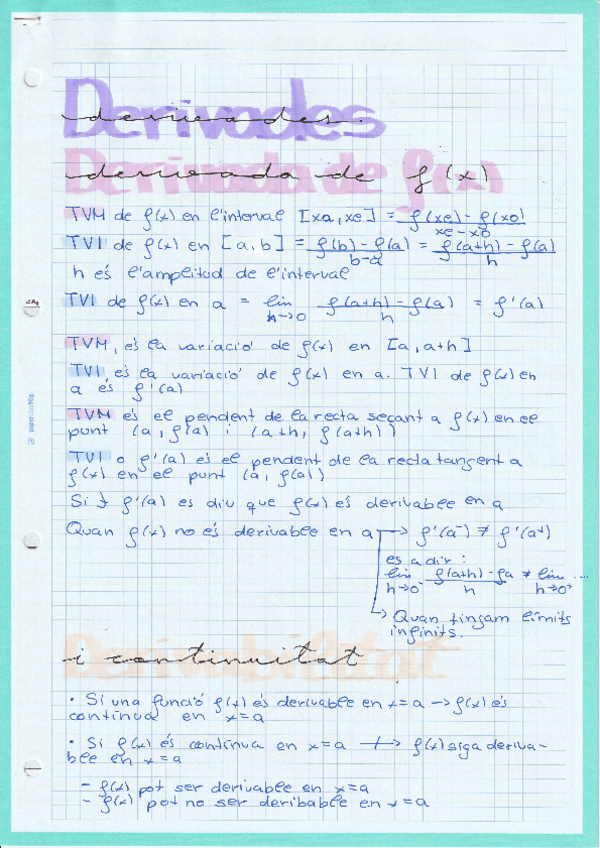 Derivades
derivades.
Derivada de f(x)
derivada de f(x)
TVM de f(x) en l'interval [xa, xe] = f(xe) - f(x0) / xe - x0
TVI de f(x) en [a, b] = f(b) - f(a) / b - a = f(a+h) - f(a) / h
h és l'amplitud de l'interval
TVI de f(x) en a = lim h→0 f(a+h) - f(a) / h = f'(a)
TVM, és la variació de f(x) en [a, a+h]
TVI és la variació de f(x) en a. TVI de f(x) en
a és f'(a)
TVM és el pendent de la recta secant a f(x) en el
punt (a, f(a) i (a+h, f(a+h))
TVI o f'(a) és el pendent de la recta tangent a
f(x) en el punt (a, f(a))
Si ∃ f'(a) es diu que f(x) és derivable en a
Quan f(x) no és derivable en a → f'(a⁻) ≠ f'(a⁺)
és a dir:
lim h→0⁻ f(a+h) - fa / h ≠ lim h→0⁺ ...
→ Quan tingam límits
infinits.
Derivabilitat
i continuitat
· Si una funció f(x) és derivable en x=a → f(x) és
contínua en x=a
· Si f(x) és contínua en x=a ↛ f(x) siga deriva-
ble en x=a
- f(x) pot ser derivable en x=a
- f(x) pot no ser deribable en x=a